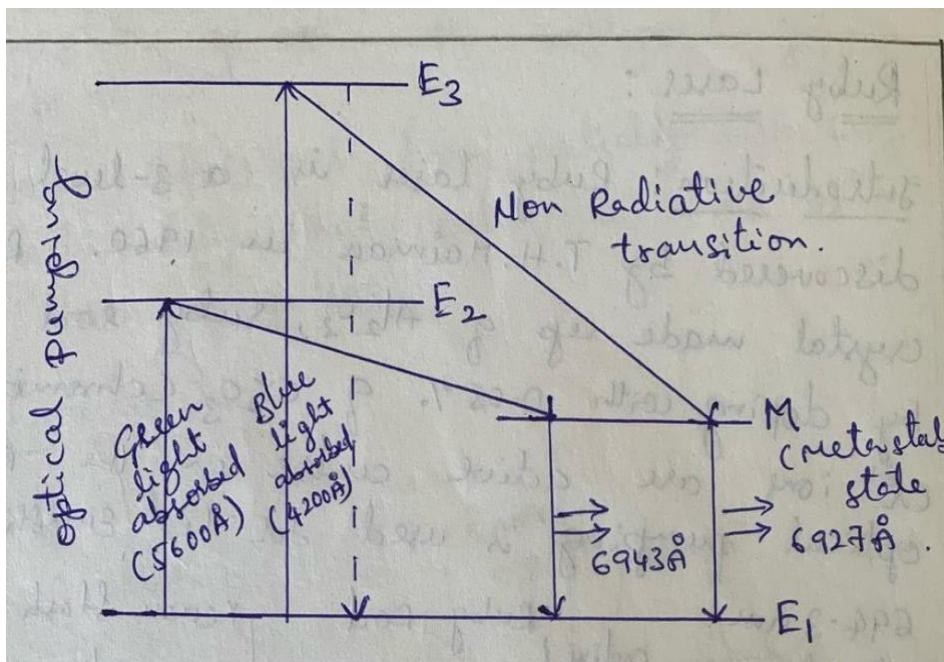 E3
Non Radiative
transition.
optical pumping
E2
Green
light
absorbed
(5600Å)
Blue
light
absorbed
(4200Å)
M
(metastab
state
6943Å
6927Å.
E1